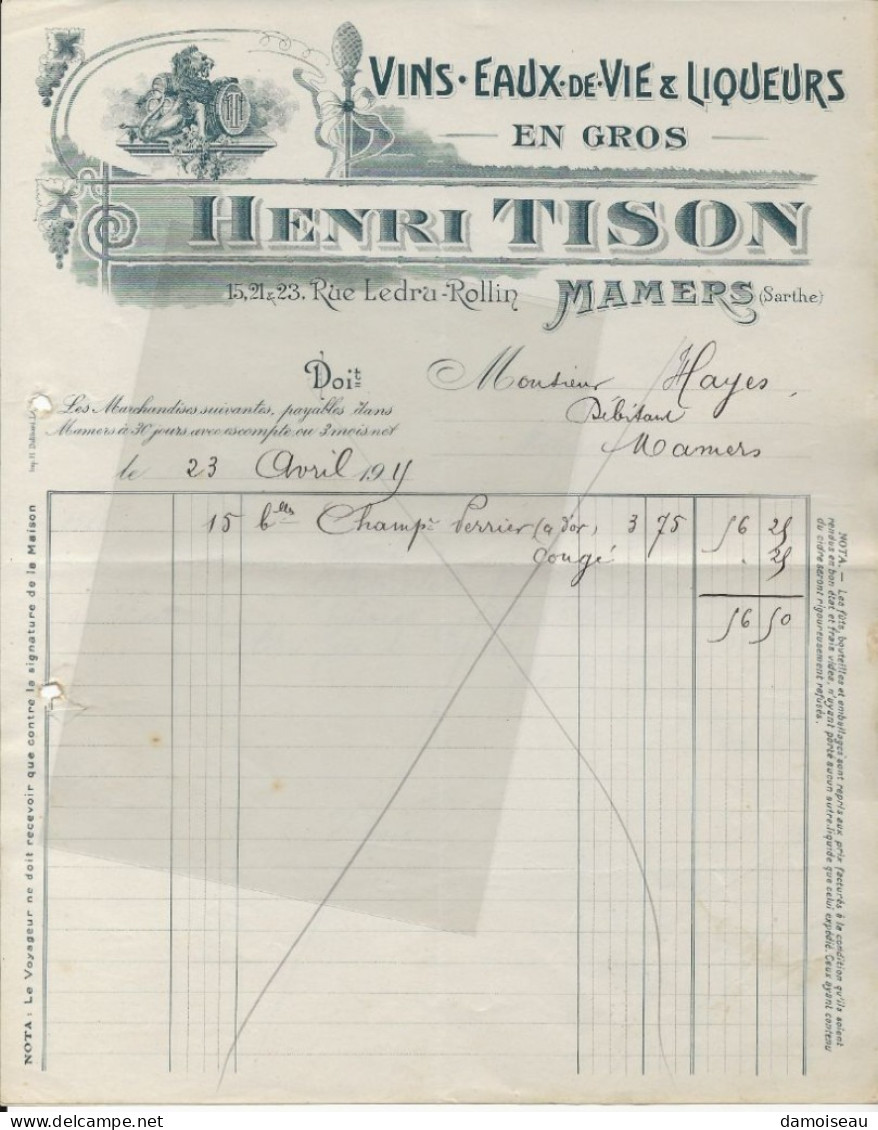 VINS · EAUX-DE-VIE & LIQUEURS
EN GROS
HENRI TISON
15, 21 & 23, Rue Ledru-Rollin MAMERS (Sarthe)
Doit Monsieur Hayes
Débitant
Mamers
Les Marchandises suivantes, payables dans
Mamers à 30 jours avec escompte ou 3 mois net
le 23 Avril 191
15 blles Champe Perrier 3 75 56 25
Congé . 25
56 50
NOTA : Le Voyageur ne doit recevoir que contre la signature de la Maison
NOTA. — Les fûts, bouteilles et emballages sont repris aux prix facturés à la condition qu'ils soient
rendus en bon état et frais vides, n'ayant porté aucun autre liquide que celui expédié. Ceux ayant contenu
du cidre seront rigoureusement refusés.
damoiseau